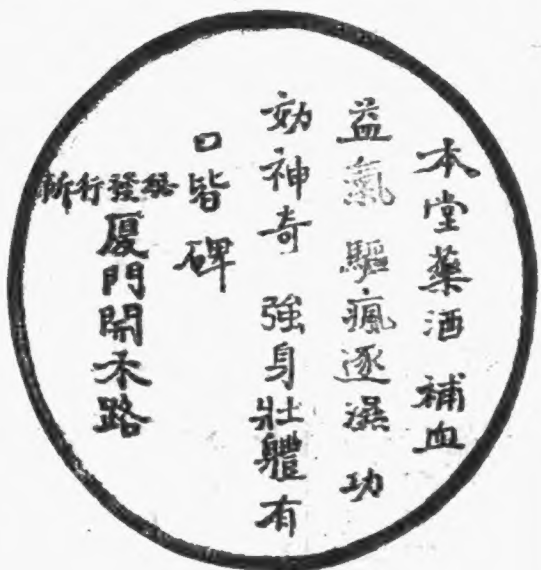 本堂藥酒 補血
益氣 驅瘋逐濕 功
効神奇 強身壯軆有
口皆碑
總發行所
廈門開禾路